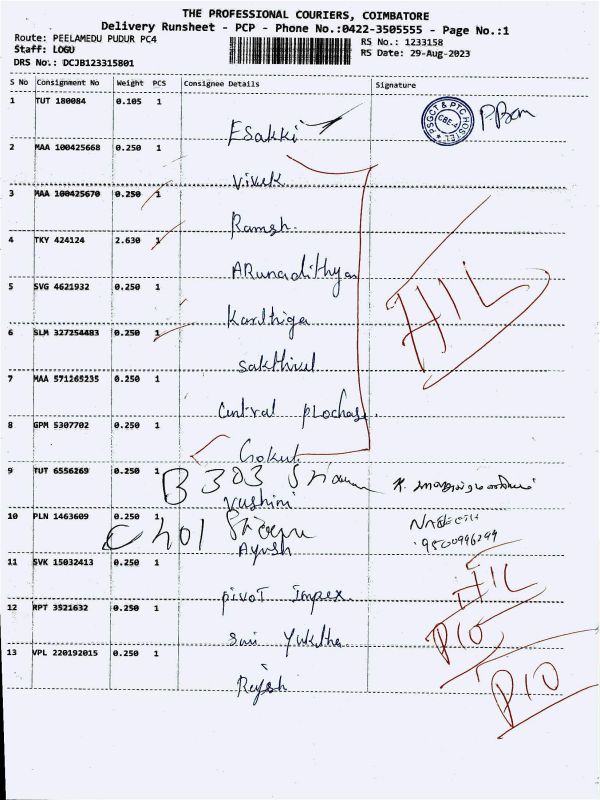 THE PROFESSIONAL COURIERS, COIMBATORE
Delivery Runsheet - PCP - Phone No.:0422-3505555 - Page No.:1
Route: PEELAMEDU PUDUR PC4
RS No.: 1233158
Staff: LOGU
RS Date: 29-Aug-2023
DRS No.: DCJB123315801
S No Consignment No Weight PCS Consignee Details Signature
1 TUT 180084 0.105 1
PSGCT & PTC HOSTEL CBE-4
Esakki
2 MAA 100425668 0.250 1
Vivek
3 MAA 100425670 0.250 1
Ramesh.
4 TKY 424124 2.630 1
ARunadithya
5 SVG 4621932 0.250 1
HIL
Karthiga
6 SLM 327254483 0.250 1
Sakthivel
7 MAA 571265235 0.250 1
Central
8 GPM 5307702 0.250 1
Gokul
9 TUT 6556269 0.250 1
B 303
Varshini
10 PLN 1463609 0.250 1
C 401
9500996299
Ayush
11 SVK 15032413 0.250 1
HIL
Pivot Impex
12 RPT 3521632 0.250 1
PIO
Yuktha
13 VPL 220192015 0.250 1
PIO
Rajesh